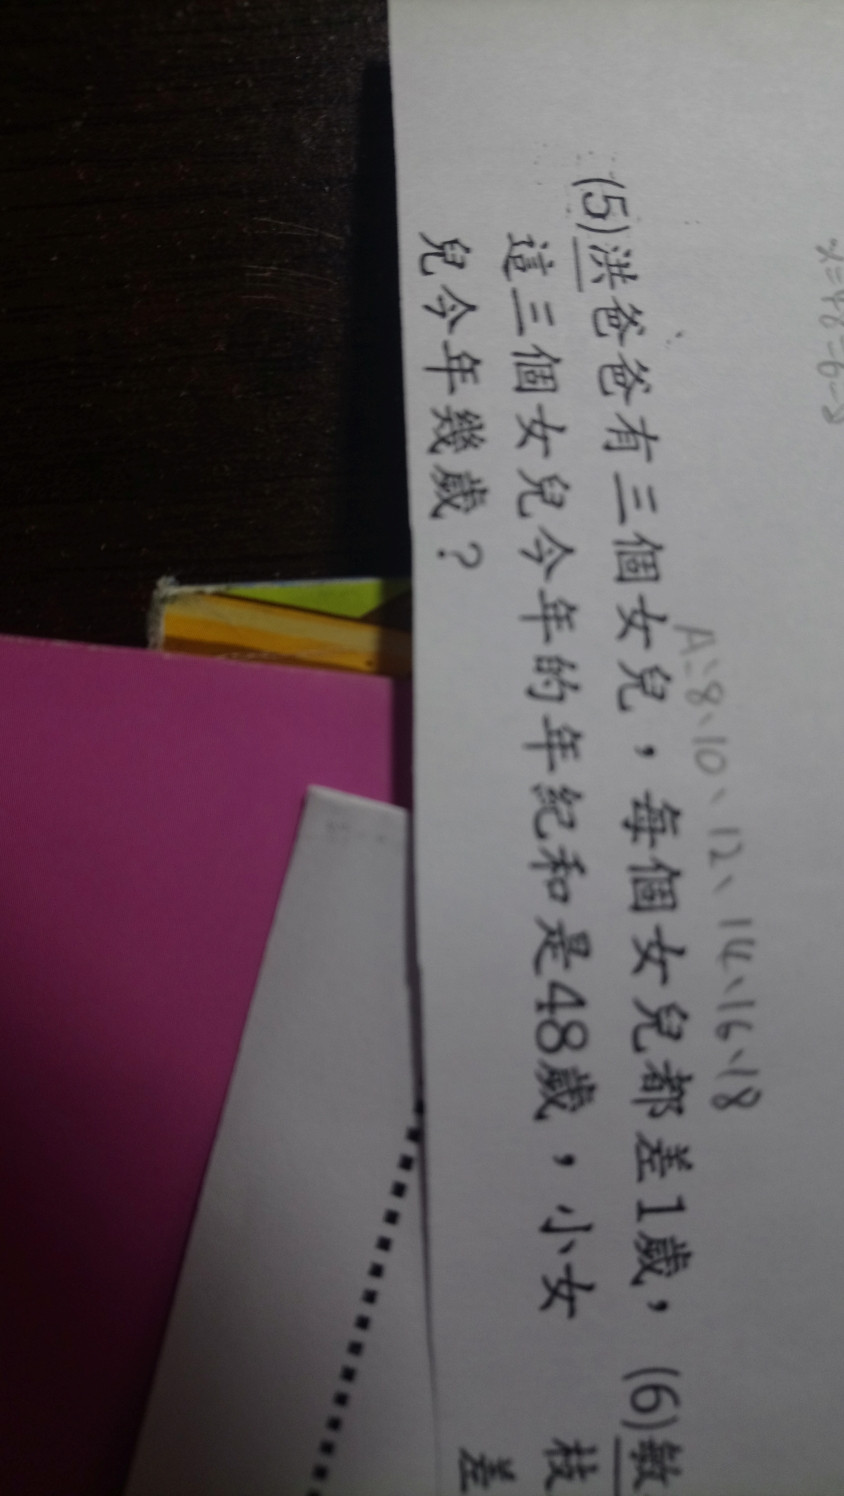 A：8、10、12、14、16、18
(5)洪爸爸有三個女兒，每個女兒都差1歲，
這三個女兒今年的年紀和是48歲，小女
兒今年幾歲？
(6)敏
枝
差